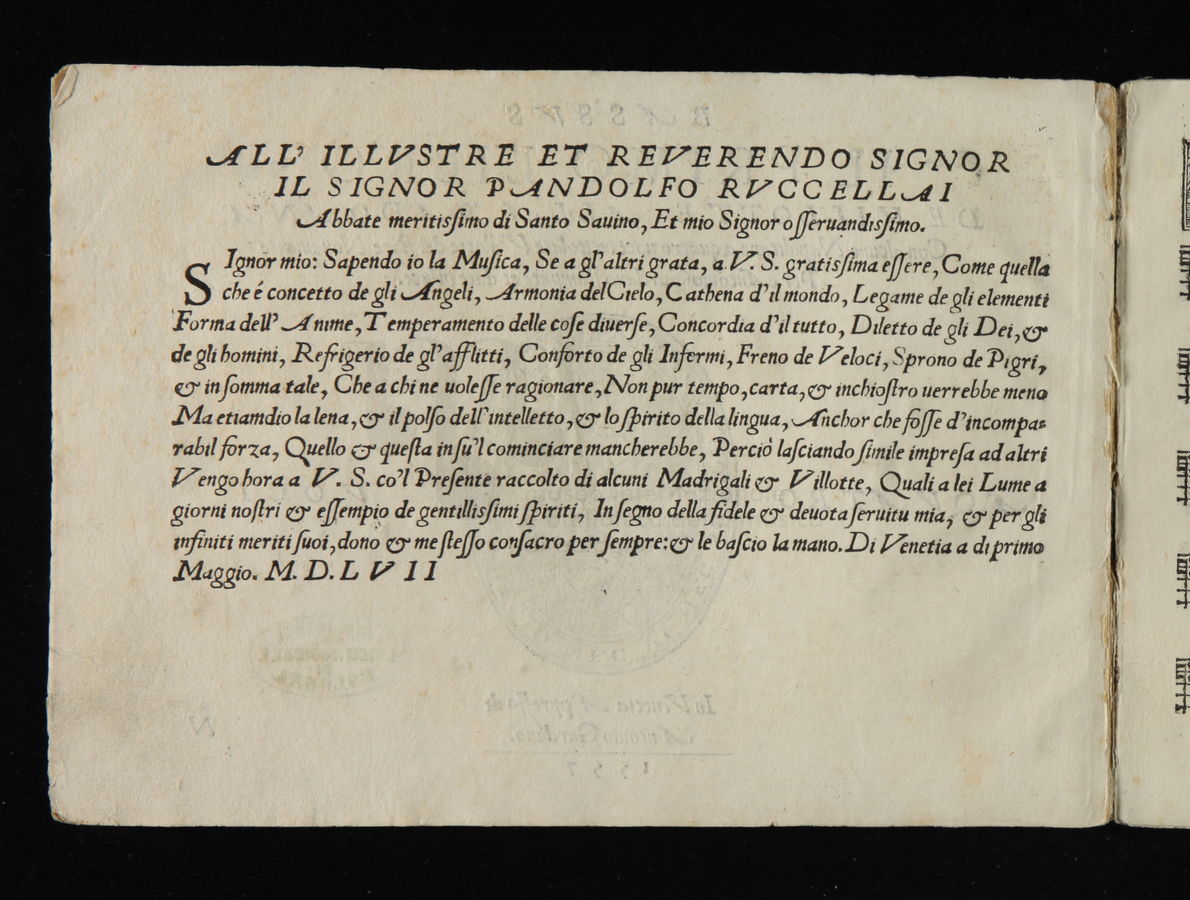 ALL' ILLVSTRE ET REVERENDO SIGNOR
IL SIGNOR PANDOLFO RVCCELLAI
Abbate meritissimo di Santo Sauino, Et mio Signor osseruandissimo.
SIgnor mio: Sapendo io la Musica, Se a gl'altri grata, a V. S. gratissima essere, Come quella
che é concetto de gli Angeli, Armonia del Cielo, Cathena d'il mondo, Legame de gli elementi
Forma dell' Anime, Temperamento delle cose diuerse, Concordia d'il tutto, Diletto de gli Dei, &
de gli homini, Refrigerio de gl'afflitti, Conforto de gli Infermi, Freno de Veloci, Sprono de Pigri,
& in somma tale, Che a chi ne uolesse ragionare, Non pur tempo, carta, & inchiostro uerrebbe meno
Ma etiamdio la lena, & il polso dell'intelletto, & lo spirito della lingua, Anchor che fosse d'incompa=
rabil forza, Quello & questa in su'l cominciare mancherebbe, Perciò lasciando simile impresa ad altri
Vengo hora a V. S. co'l Presente raccolto di alcuni Madrigali & Villotte, Quali a lei Lume a
giorni nostri & essempio de gentillissimi spiriti, In segno della fidele & deuota seruitu mia, & per gli
infiniti meriti suoi, dono & me stesso consacro per sempre: & le bascio la mano. Di Venetia a di primo
Maggio. M. D. L V I I